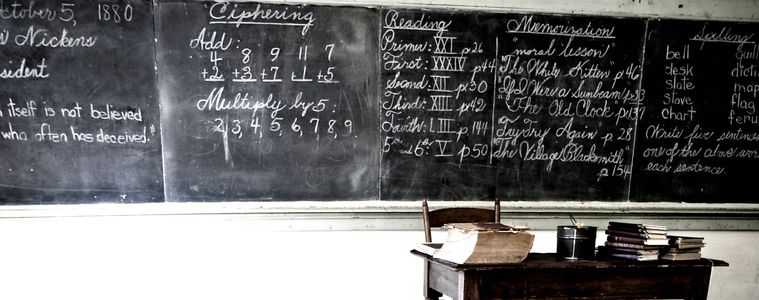 ctober 5, 1880
Nickens
sident
itself is not believed
who often has deceived."
Ciphering
Add:
4 8 9 11 7
+2 +3 +7 +1 +5
Multiply by 5:
2, 3, 4, 5, 6, 7, 8, 9.
Reading
Primer: XXI p 26
First: XXXIV p 44
Second: XII p 30
Third: XIII p 42
Fourth: LIII p 144
5th and 6th: V p 50
Memorization
"moral lesson"
"The White Kitten" p 46
"If I Were a Sunbeam" p 53
"The Old Clock" p 137
Try Try Again p 28
"The Village Blacksmith"
p 154
Spelling
bell quil
desk dicti
slate map
stove flag
chart feru
Write five sentences
one of the above wor
each sentence.